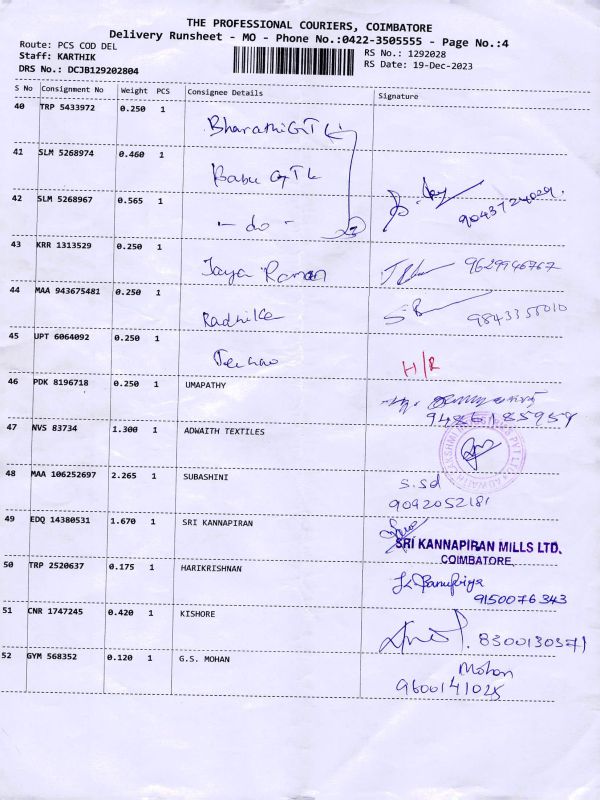 THE PROFESSIONAL COURIERS, COIMBATORE
Delivery Runsheet - MO - Phone No.:0422-3505555 - Page No.:4
Route: PCS COD DEL
Staff: KARTHIK
DRS No.: DCJB129202804
RS No.: 1292028
RS Date: 19-Dec-2023
S No Consignment No Weight PCS Consignee Details Signature
40 TRP 5433972 0.250 1 Bharathi GTL
41 SLM 5268974 0.460 1 Babu GTL
42 SLM 5268967 0.565 1 - do - 9043724029.
43 KRR 1313529 0.250 1 Jaya Raman 9629946767
44 MAA 943675481 0.250 1 Radhika
45 UPT 6064092 0.250 1 H/R
46 PDK 8196718 0.250 1 UMAPATHY 9486185959
47 NVS 83734 1.300 1 ADWAITH TEXTILES
48 MAA 106252697 2.265 1 SUBASHINI S.Sd
9092052181
49 EDQ 14380531 1.670 1 SRI KANNAPIRAN
SRI KANNAPIRAN MILLS LTD.
COIMBATORE
50 TRP 2520637 0.175 1 HARIKRISHNAN
9150076343
51 CNR 1747245 0.420 1 KISHORE 8300130371
52 GYM 568352 0.120 1 G.S. MOHAN Mohan
9600141025